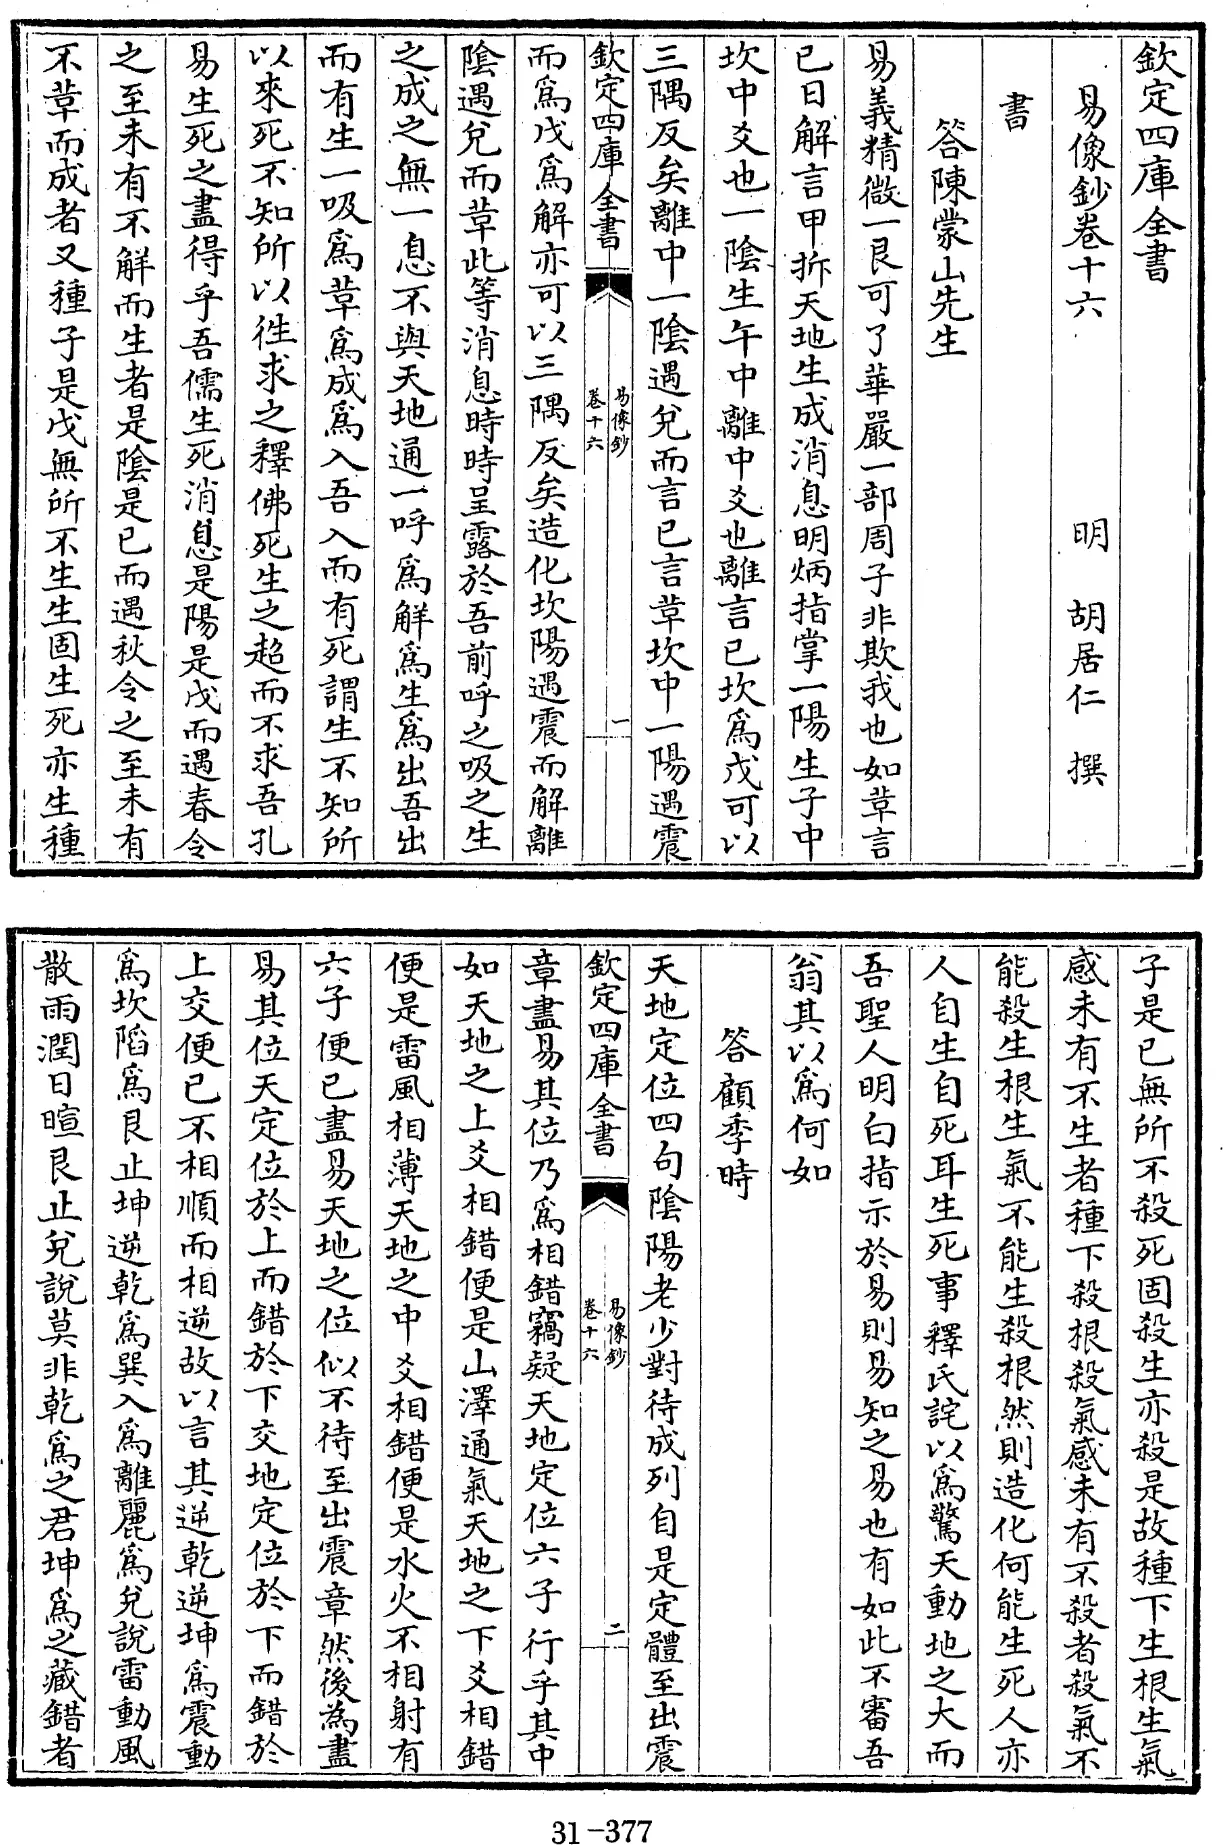 欽定四庫全書
易像鈔卷十六
明 胡居仁 撰
書
答陳蒙山先生
易義精微一艮可了華嚴一部周子非欺我也如草言
已日解言甲拆天地生成消息明炳指掌一陽生子中
坎中爻也一陰生午中離中爻也離言已坎為戊可以
三隅反矣離中一陰遇兌而言已言草坎中一陽遇震
而為戊為解亦可以三隅反矣造化坎陽遇震而解離
陰遇兌而草此等消息時時呈露於吾前呼之吸之生
之成之無一息不與天地通一呼為解為生為出吾出
而有生一吸為草為成為入吾入而有死謂生不知所
以來死不知所以徃求之釋佛死生之超而不求吾孔
易生死之盡得乎吾儒生死消息是陽是戊而遇春令
之至未有不解而生者是陰是已而遇秋令之至未有
不草而成者又種子是戊無所不生生固生死亦生種
欽定四庫全書
易像鈔
卷十六
一
子是已無所不殺死固殺生亦殺是故種下生根生氣
感未有不生者種下殺根殺氣感未有不殺者殺氣不
能殺生根生氣不能生殺根然則造化何能生死人亦
人自生自死耳生死事釋氏詫以為驚天動地之大而
吾聖人明白指示於易則易知之易也有如此不審吾
翁其以為何如
答顧季時
天地定位四句陰陽老少對待成列自是定體至出震
章盡易其位乃為相錯竊疑天地定位六子行乎其中
如天地之上爻相錯便是山澤通氣天地之下爻相錯
便是雷風相薄天地之中爻相錯便是水火不相射有
六子便已盡易天地之位似不待至出震章然後為盡
易其位天定位於上而錯於下交地定位於下而錯於
上交便已不相順而相逆故以言其逆乾逆坤為震動
為坎陷為艮止坤逆乾為巽入為離麗為兌說雷動風
散雨潤日暄艮止兌說莫非乾為之君坤為之藏錯者
欽定四庫全書
易像鈔
卷十六
二
31-377